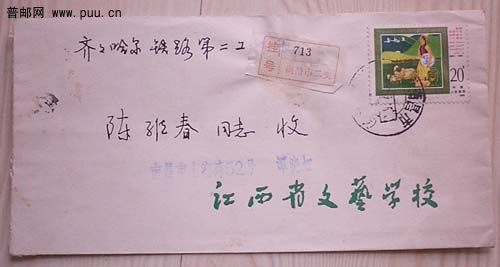 普邮网
www.puu.cn
齐々哈尔铁路第二工
挂号
713
南昌市二支
20
陈维春同志 收
南昌市
52号
江西省文藝学校